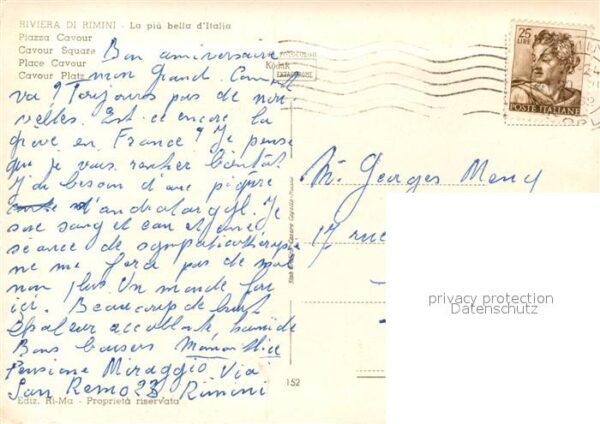 RIVIERA DI RIMINI - La più bella d'Italia
Piazza Cavour
Cavour Square
Place Cavour
Cavour Platz
Kodak
EKTACHROME
25
LIRE
POSTE ITALIANE
Bon anniversaire
mon Grand. Comment
va? Toujours pas de nou-
velles. Est-ce encore la
grève en France? Je pense
que je vais rentrer bientôt
J'ai besoin d'une piqûre
d'andratardyl. Je
suis sang et eau et une
séance de sympathicothérapie
ne me fera pas de mal
non plus. Un monde fou
ici. Beaucoup de bruit
chaleur accablante, humide
Bons baisers
Pensione Miraggio Via
San Remo 23 Rimini
Ediz. Ri-Ma - Proprietà riservata
152
Mr Georges
17 rue
privacy protection
Datenschutz